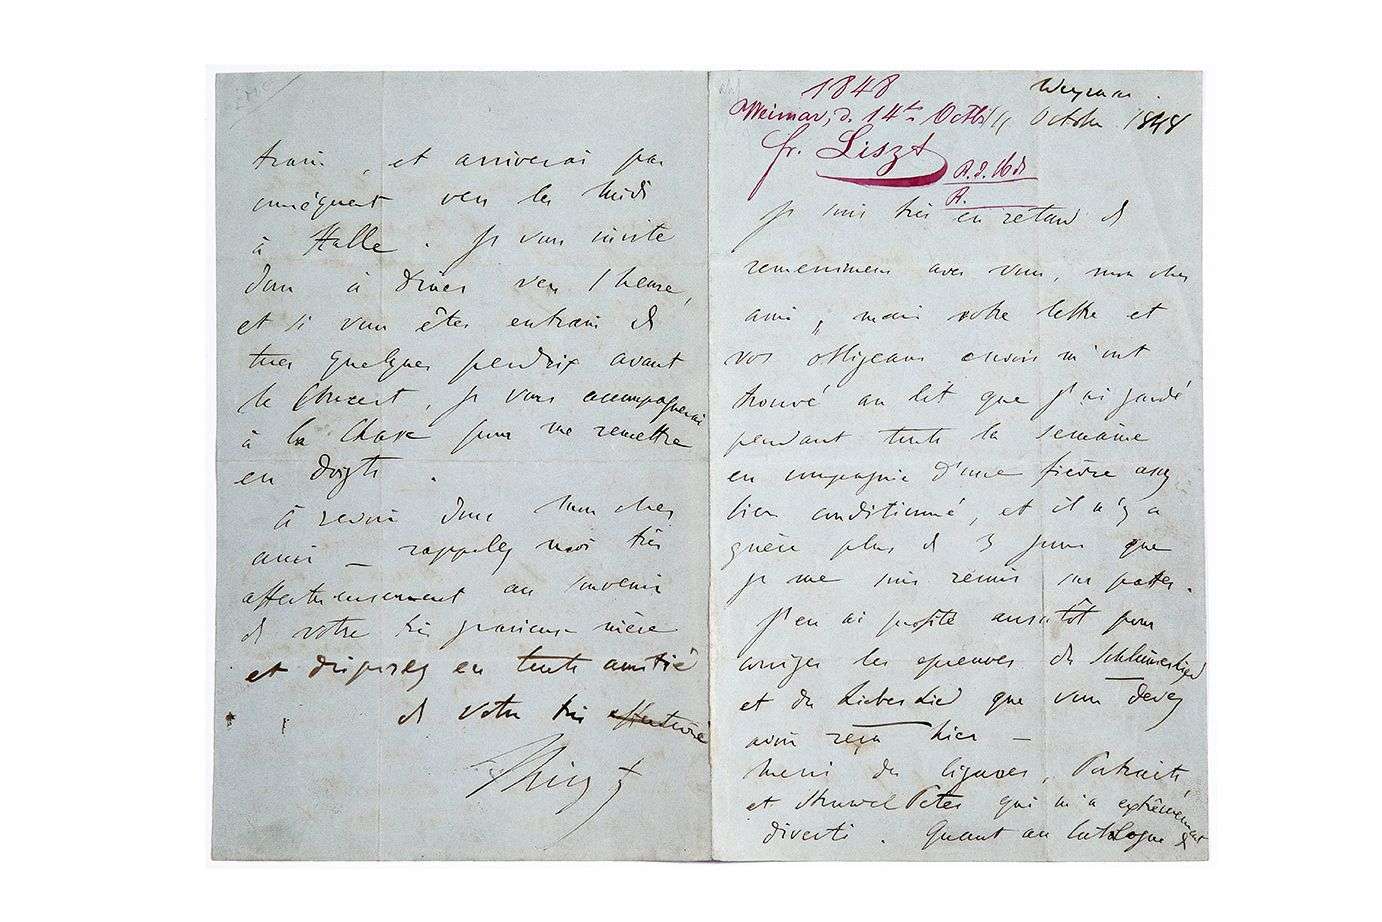 1848
Weymar.
Weimar, d. 14 Octb 14 Octobre 1848
fr. Liszt
R. d. 16 d
R.
Je suis très en retard de
remerciment avec vous, mon cher
ami, mais votre lettre et
vos obligeans envois m'ont
trouvé au lit que j'ai gardé
pendant toute la semaine
en compagnie d'une fièvre assez
bien conditionné, et il n'y a
guère plus de 3 jours que
je me suis remis sur pattes.
J'en ai profité aussitôt pour
corriger les épreuves du Schlummerlied
et du Liebeslied que vous devez
avoir reçu hier —
Merci des cigares, Portraits
et Struwel Peter qui m'a extrêmement
diverti. Quant au Catalogue de
train, et arriverai par
conséquent vers les midi
à Halle. Je vous invite
donc à dîner vers 1 heure,
et si vous êtes entrain de
tuer quelques perdrix avant
le Concert, je vous accompagnerai
à la chasse pour me remettre
en doigts.
à revoir donc mon cher
ami — rappelez moi très
affectueusement au souvenir
de votre très gracieuse mère
et disposez en toute amitié
de votre très affectionné
FLiszt